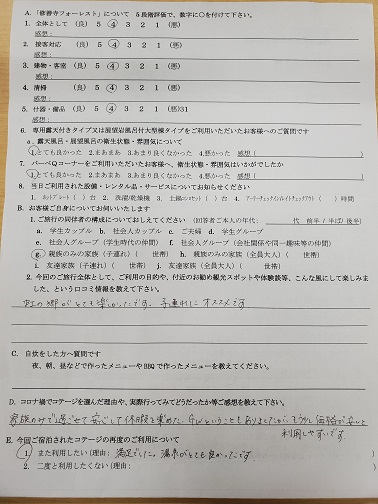 A. 「修善寺フォーレスト」について 5段階評価で、数字に○を付けて下さい。
1. 全体として (良) 5 4 3 2 1 (悪)
感想：
2. 接客対応 (良) 5 4 3 2 1 (悪)
感想：
3. 建物・客室 (良) 5 4 3 2 1 (悪)
感想：
4. 清掃 (良) 5 4 3 2 1 (悪)
感想：
5. 什器・備品 (良) 5 4 3 2 1 (悪)31
感想：
6. 専用露天付きタイプ又は展望岩風呂付大型棟タイプをご利用いただいたお客様へのご質問です
a. 露天風呂・展望風呂の衛生状態・雰囲気について
1.とても良かった 2.まあまあ 3.あまり良くなかった 4.悪かった 感想( )
7. バーベQコーナーをご利用いただいたお客様へ、衛生状態・雰囲気はいかがでしたか
1.とても良かった 2.まあまあ 3.あまり良くなかった 4.悪かった 感想( )
8. 当日ご利用された設備・レンタル品・サービスについてお知らせください
1. ホットプレート( )台 2. 洗濯/乾燥機 3. 土鍋コンセット( )台 4. アーリーチェックイン/レイトチェックアウト( )時間
B. お客様ご自身についてお伺いいたします
1. ご旅行の同伴者の構成についておしえてください (回答者ご本人の年代： 代 前半/半ば/後半)
a. 学生カップル b. 社会人カップル c. ご夫婦 d. 学生グループ
e. 社会人グループ(学生時代の仲間) f. 社会人グループ(会社関係や同一趣味等の仲間)
g. 親族のみの家族(子連れ)( 世帯) h. 親族のみの家族(全員大人)( 世帯)
i. 友達家族(子連れ)( 世帯) j. 友達家族(全員大人)( 世帯)
2. 今回のご旅行全体として、ご利用の目的や、付近のお勧め観光スポットや体験談等、こんな風にして楽しみました、という口コミ情報を教えて下さい。
虹の郷がとても楽しかったです。子連れに オススメです
C. 自炊をした方へ質問です
夜、朝、昼などで作ったメニューやBBQで作ったメニューを教えてください。
D. コロナ禍でコテージを選んだ理由や、実際行ってみてどうだったか等ご感想を教えて下さい。
家族のみで過ごせて安心して休暇を楽めた。GWということもありましたが、もう少し価格が安いと
利用しやすいです。
E. 今回ご宿泊されたコテージの再度のご利用について
1. また利用したい(理由： 満足でした。湯舟がとても良かったです )
2. 二度と利用したくない(理由： )